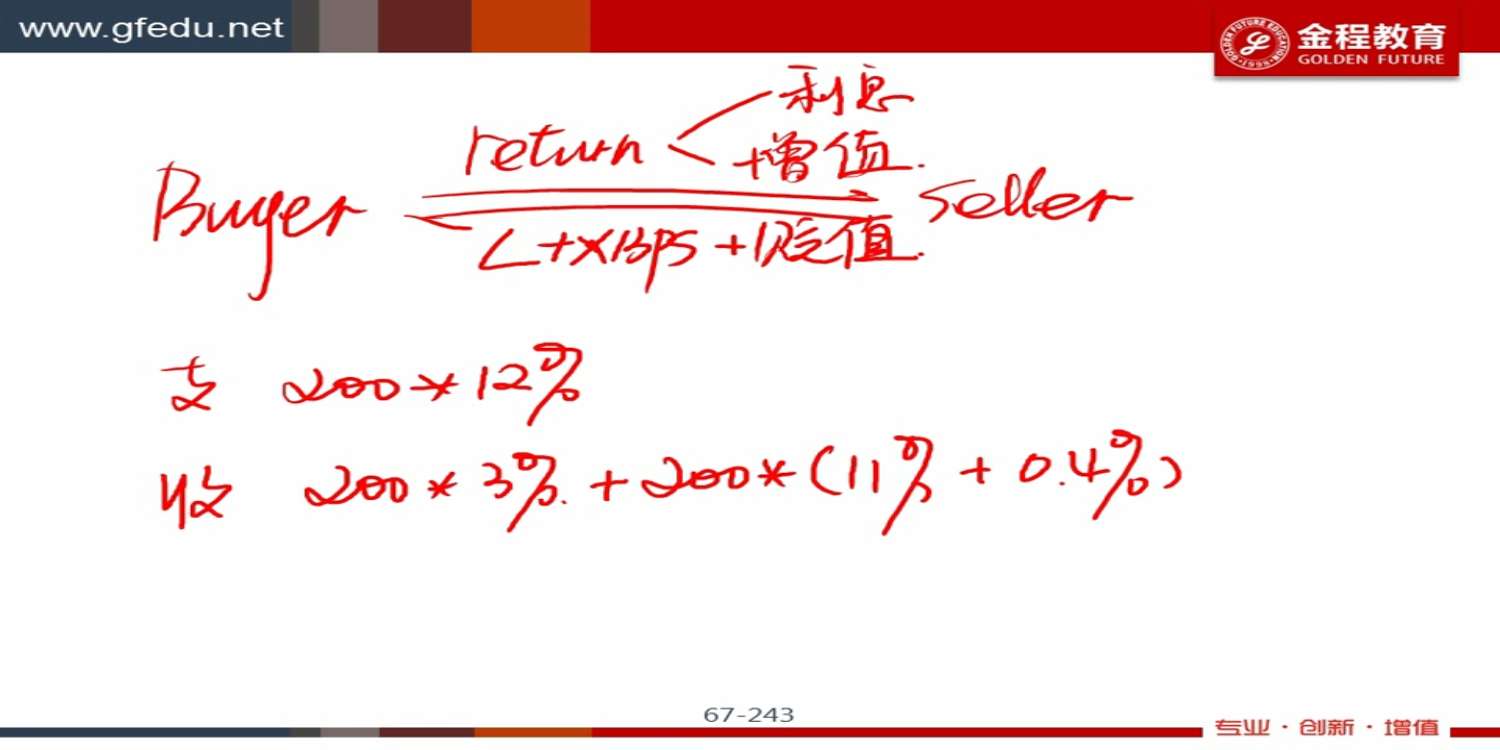 www.gfedu.net
金程教育
GOLDEN FUTURE
GOLDEN FUTURE EDUCATION
·1998·
利息
return < +增值.
Buyer
Seller
L+XBPS+贬值.
支 200*12%
收 200*3%.+200*(11%+0.4%)
67-243
专业·创新·增值